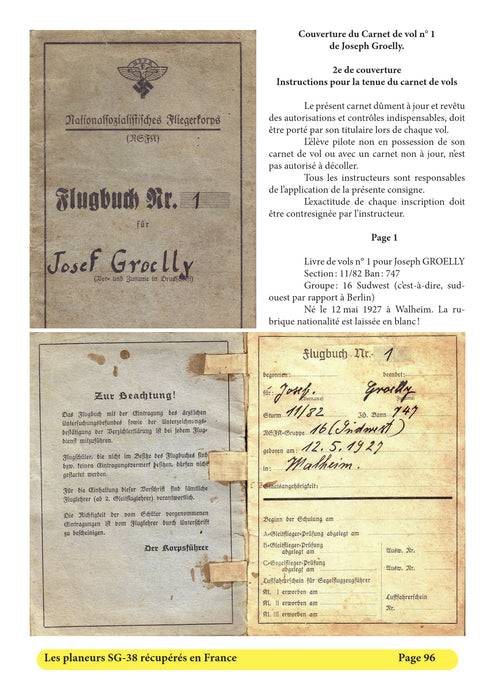 Couverture du Carnet de vol n° 1
de Joseph Groelly.
2e de couverture
Instructions pour la tenue du carnet de vols
Le présent carnet dûment à jour et revêtu
des autorisations et contrôles indispensables, doit
être porté par son titulaire lors de chaque vol.
L'élève pilote non en possession de son
carnet de vol ou avec un carnet non à jour, n'est
pas autorisé à décoller.
Tous les instructeurs sont responsables
de l'application de la présente consigne.
L'exactitude de chaque inscription doit
être contresignée par l'instructeur.
Page 1
Livre de vols n° 1 pour Joseph GROELLY
Section : 11/82 Ban : 747
Groupe : 16 Sudwest (c'est-à-dire, sud-
ouest par rapport à Berlin)
Né le 12 mai 1927 à Walheim. La ru-
brique nationalité est laissée en blanc !
Nationalsozialistisches Fliegerkorps
(NSFK)
Flugbuch Nr. 1
für
Josef Groelly
(Vor- und Zuname in Druckschrift)
Zur Beachtung!
Das Flugbuch mit der Eintragung des ärztlichen
Untersuchungsbefundes sowie der Unterzeichnungs-
bestätigung der Verzichterklärung ist bei jedem Flug-
dienst mitzuführen.
Flugschüler, die nicht im Besitze des Flugbuches sind
bzw. keinen Eintragungsvermerk besitzen, dürfen nicht
gestartet werden.
Für die Einhaltung dieser Vorschrift sind sämtliche
Fluglehrer (ab 2. Gleitfluglehrer) verantwortlich.
Die Richtigkeit der vom Schüler vorgenommenen
Eintragungen ist vom Fluglehrer durch Unterschrift
zu bescheinigen.
Der Korpsführer
Flugbuch Nr. 1
begonnen: beendet:
für Josef Groelly
Vorname Zuname
Sturm 11/82 Hj. Bann 747
NSFK-Gruppe 16 (Südwest)
geboren am 12. 5. 1927
in: Walheim.
Staatsangehörigkeit:
Beginn der Schulung am
A-Gleitflieger-Prüfung abgelegt am
B-Gleitflieger-Prüfung
abgelegt am Ausw. Nr.
C-Segelflieger-Prüfung
abgelegt am Ausw. Nr.
Luftfahrerschein für Segelflugzeugführer
Kl. I erworben am
Kl. II erworben am Luftfahrerschein
Kl. III erworben am Nr.
Les planeurs SG-38 récupérés en France Page 96